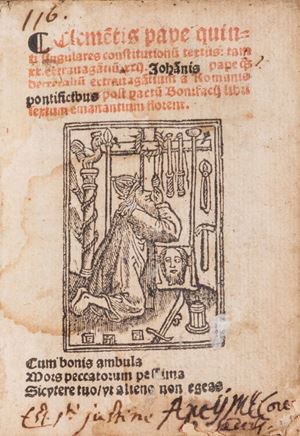 116.
Clemẽtis pape quin-
ti singulares constitutionũ textus: tam
xx. extrauagãtiũ xxij. Johãnis pape qȝ
extrauagãtium a Romanis
pontificibus post Bonifacij libri
textum emanantium florent.
Cum bonis ambula
Mors peccatorum pessima
Sic vtere tuo/vt alieno non egeas